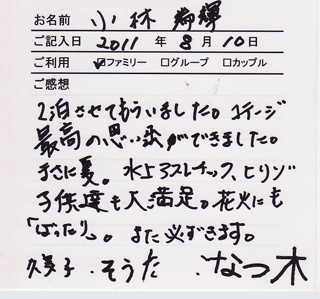 お名前 小林
ご記入日 2011 年 8 月 10 日
ご利用 ☑ファミリー □グループ □カップル
ご感想
2泊させてもらいました。
最高の思い出ができました。
まさに夏。水上アスレチック、
子供達も大満足。花火にも
「ばったり」。また必ずきます。
そうた なつ木